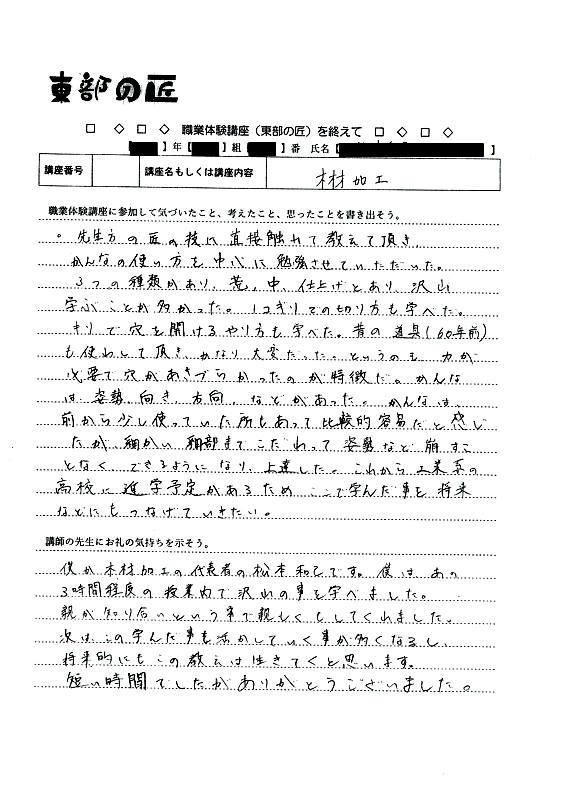 東部の匠
□ ◇ □ ◇ 職業体験講座（東部の匠）を終えて □ ◇ □ ◇
【 】年【 】組【 】番 氏名【 】
講座番号 講座名もしくは講座内容 木材加工
職業体験講座に参加して気づいたこと、考えたこと、思ったことを書き出そう。
。先生方の匠の技に直接触れて教えて頂き、
かんなの使い方を中心に勉強させていただいた。
3つの種類があり、荒、中、仕上げとあり沢山
学ぶことが多かった。ノコギリでの切り方も学べた。
キリで穴を開けるやり方も学べた。昔の道具(60年前)
も使わして頂き、かなり大変だった。というのも力が
必要で穴があきづらかったのが特徴だ。かんな
は姿勢、向き、方向、などがあった。かんなは、
前から少し使っていた所もあって比較的容易だと感じ
たが、細かい細部までこだわって姿勢など崩すこ
となくできるようになり、上達した。これから工業系の
高校に進学予定があるためここで学んだ事を将来
などにもつなげていきたい。
講師の先生にお礼の気持ちを示そう。
僕が木材加工の代表者の松本和です。僕はあの
3時間程度の授業内で沢山の事を学べました。
親が知り合いという事で親しくもしてくれました。
次はこの学んだ事を活かしていく事が多くなるし、
将来的にもこの教えは生きてくと思います。
短い時間でしたがありがとうございました。